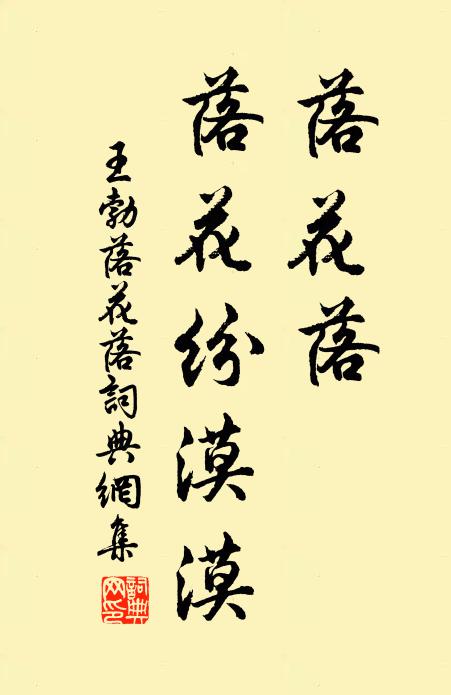 落花落
落花紛漠漠
王勃落花落詞典網集
詞典网印